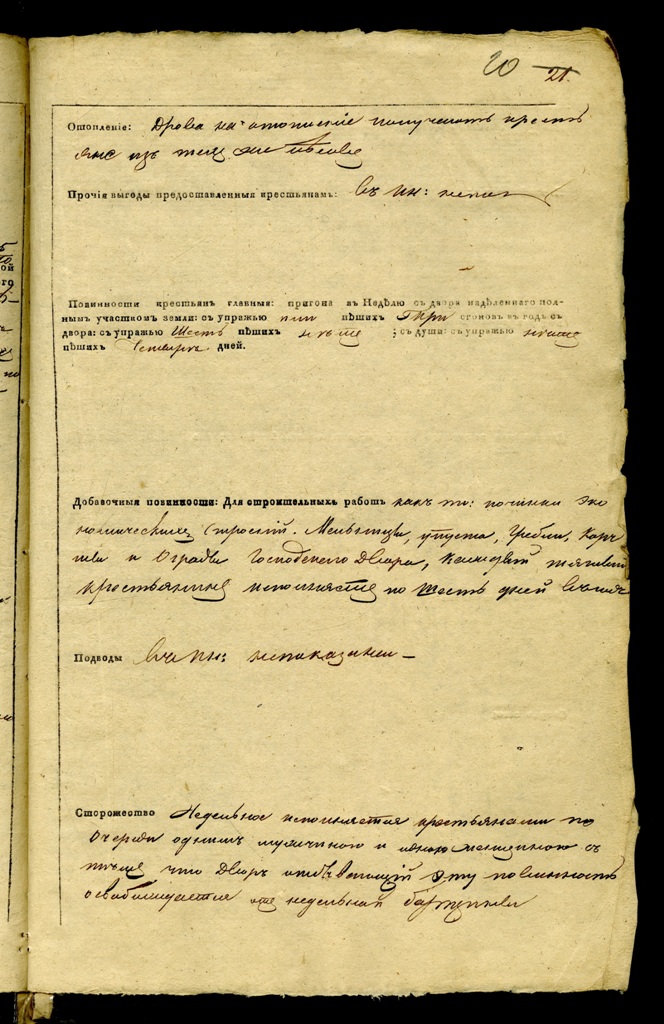 20 21.
Отопленіе: Дрова на отопленіе получаютъ кресть
яне изъ
Прочія выгоды предоставленныя крестьянамъ: въ ин: непок
Повинности крестьян главныя: пригона въ Недѣлю съ двора надѣленнаго пол-
нымъ участкомъ земли: съ упряжью пѣшихъ три сгоновъ въ годъ съ
двора: съ упряжью Шесть пѣшихъ ; съ души: съ упряжью
пѣшихъ четыре дней.
Добавочныя повинности: Для строительныхъ работъ какъ то: починки эко
номическихъ строеній. Мельницы, упуста, Гребли, Корч
мы и Ограды Господскаго Двора, каждый тягловый
крестьянинъ исполняетъ по шесть дней въ годъ
Подводы въ ин: непоказаны —
Сторожество Недельное исполняется крестьянами по
Очереди однимъ мужчиною и одною женщиною съ
тѣмъ что Дворъ отбывающій эту повинность
освобождается отъ недельной барщины